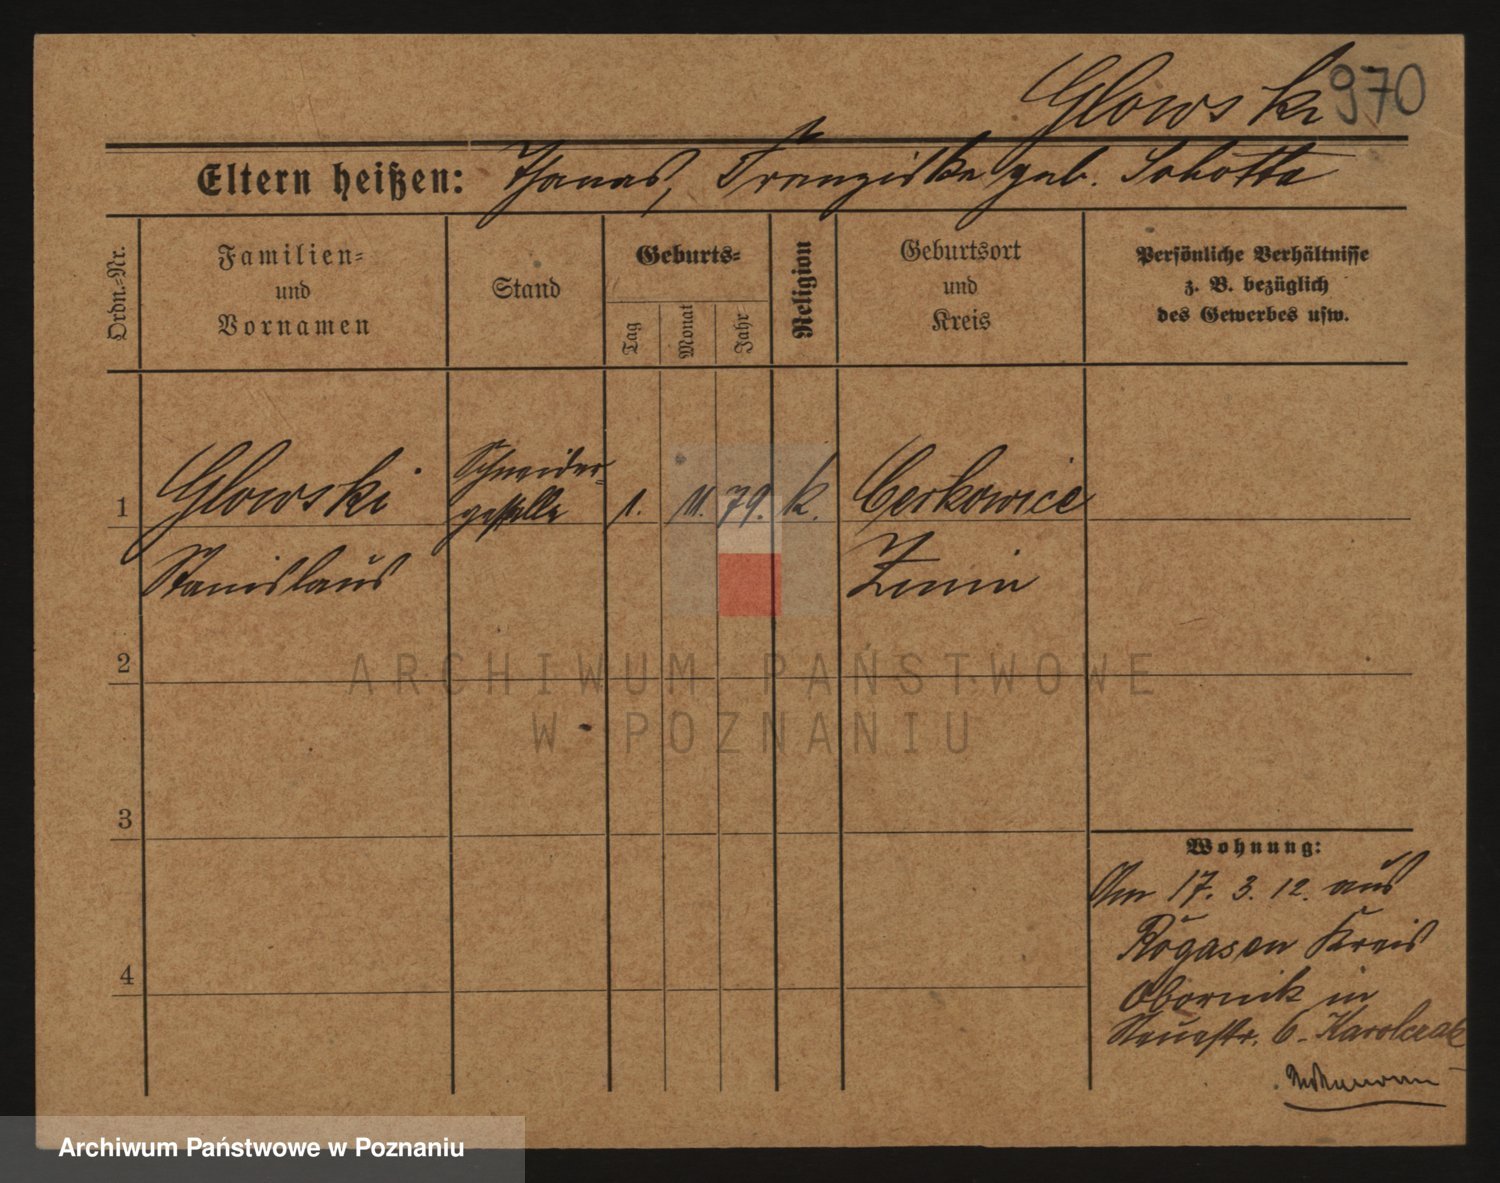 Glowski 970
Eltern heißen: Thomas, Franziska geb. Sobotta
Ordn.=Nr.
Familien=
und
Vornamen
Stand
Geburts=
Tag
Monat
Jahr
Religion
Geburtsort
und
Kreis
Persönliche Verhältnisse
z. B. bezüglich
des Gewerbes usw.
Schneider=
1 Glowski geselle 1. 11. 79. k. Cerkowice
Stanislaus Znin
ARCHIWUM PAŃSTWOWE
2
W POZNANIU
3
Wohnung:
Am 17. 3. 12. aus
Rogasen Kreis
4
Obornik in
6. Karolczak
Archiwum Państwowe w Poznaniu